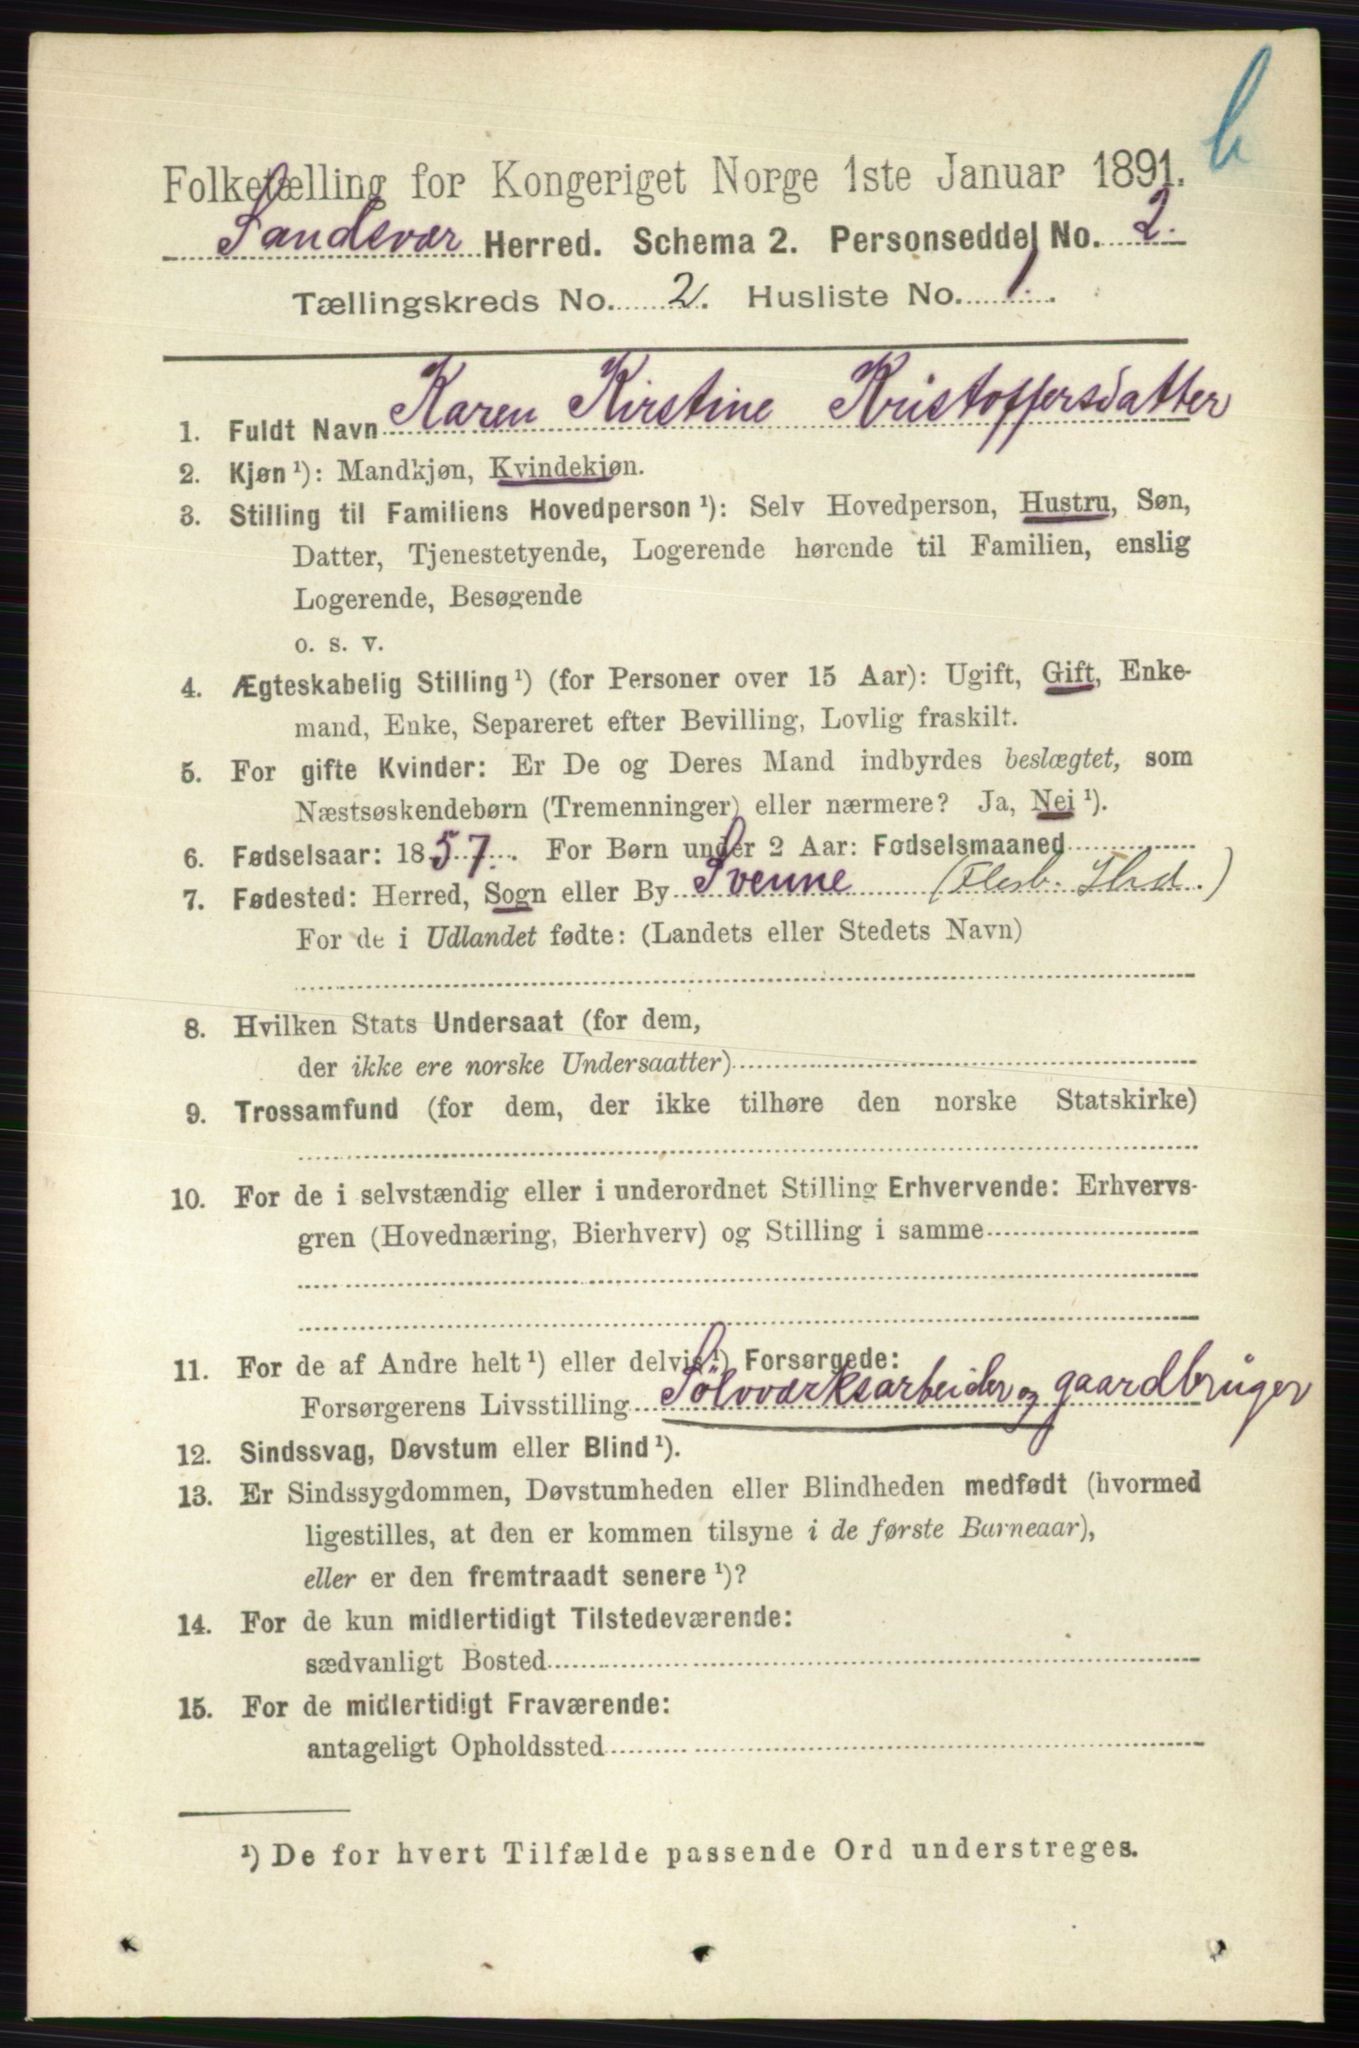 b
Folketælling for Kongeriget Norge 1ste Januar 1891.
Sandsvær Herred. Schema 2. Personseddel No. 2.
Tællingskreds No. 2. Husliste No. 1.
1. Fuldt Navn Karen Kirstine Kristoffersdatter
2. Kjøn ¹): Mandkjøn, Kvindekjøn.
3. Stilling til Familiens Hovedperson ¹): Selv Hovedperson, Hustru, Søn,
Datter, Tjenestetyende, Logerende hørende til Familien, enslig
Logerende, Besøgende
o. s. v.
4. Ægteskabelig Stilling ¹) (for Personer over 15 Aar): Ugift, Gift, Enke-
mand, Enke, Separeret efter Bevilling, Lovlig fraskilt.
5. For gifte Kvinder: Er De og Deres Mand indbyrdes beslægtet, som
Næstsøskendebørn (Tremenninger) eller nærmere? Ja, Nei ¹).
6. Fødselsaar: 1857. For Børn under 2 Aar: Fødselsmaaned
7. Fødested: Herred, Sogn eller By Svenne (Flesb. Hrd.)
For de i Udlandet fødte: (Landets eller Stedets Navn)
8. Hvilken Stats Undersaat (for dem,
der ikke ere norske Undersaatter)
9. Trossamfund (for dem, der ikke tilhøre den norske Statskirke)
10. For de i selvstændig eller i underordnet Stilling Erhvervende: Erhvervs-
gren (Hovednæring, Bierhverv) og Stilling i samme
11. For de af Andre helt ¹) eller delvis ¹) Forsørgede:
Forsørgerens Livsstilling Sölvværksarbeider og gaardbruger
12. Sindssvag, Døvstum eller Blind ¹).
13. Er Sindssygdommen, Døvstumheden eller Blindheden medfødt (hvormed
ligestilles, at den er kommen tilsyne i de første Barneaar),
eller er den fremtraadt senere ¹)?
14. For de kun midlertidigt Tilstedeværende:
sædvanligt Bosted
15. For de midlertidigt Fraværende:
antageligt Opholdssted
¹) De for hvert Tilfælde passende Ord understreges.